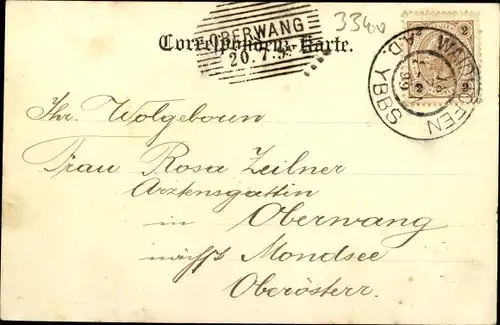 3340
OBERWANG
20.7.9
Correspondenz-Karte.
2 2
2 2
WAIDHOFEN
A.D. YBBS
Ihr. Wolgeboren
Frau Rosa Zeilner
Arztensgattin
in Oberwang
nächst Mondsee
Oberösterr.